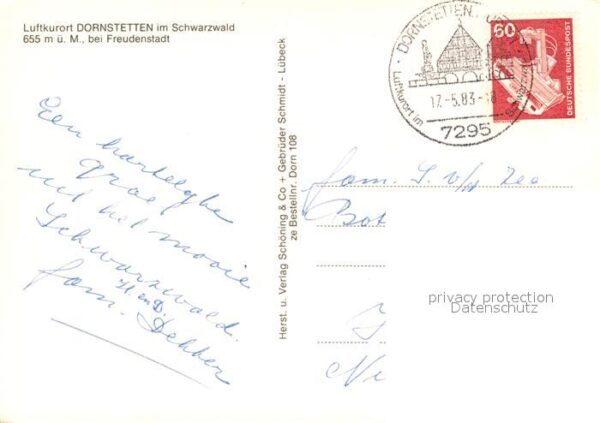 Luftkurort DORNSTETTEN im Schwarzwald
655 m ü. M., bei Freudenstadt
Een hartelijke
groet
uit het mooie
Schwarzwald.
fam. Dekker
Herst. u. Verlag Schöning & Co + Gebrüder Schmidt - Lübeck
ze Bestellnr. Dorn 108
DORNSTETTEN
Luftkurort im
17.-5.83-18
7295
60
DEUTSCHE BUNDESPOST
fam. S. v/d Zee
Bot
privacy protection
Datenschutz